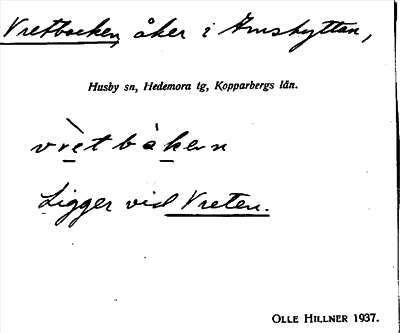 Vretbacken, åker i Amshyttan,
Husby sn, Hedemora tg, Kopparbergs län.
vrètbákən
Ligger vid Vreten.
OLLE HILLNER 1937.